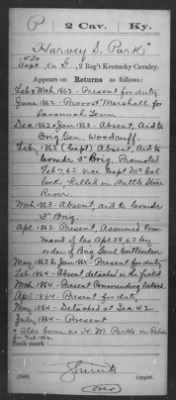 P 2 Cav. Ky.
Harvey S. Park
Capt., Co. D, 2 Reg't Kentucky Cavalry.
Appears on Returns as follows:
Feb & Mch 1862 - Present for duty
June 1862 - Provost Marshall for
Savannah Tenn
Dec 1862 & Jan 1863 - Absent, Aid to
Brig Gen. Woodruff.
Feby 1863 (Capt) Absent, Aid to
Comdr 3" Brig. Promoted
Feb 7, 63 vice Capt
killed in Battle Stone
River
Mch 1863 - Absent, aid to Comdr
3" Brig
Apr 1863 Present, Assumed Com
mand of Co Apr 28, 63 by
order of Brig Genl
May 1863 to Jan 1864 - Present for duty
Feb 1864 - Absent detached in the field
Mch 1864 - Present Commanding
Apr 1864 - Present for duty
May 1864 - Detached at
July 1864 - Present
Also borne as H. M. Parks on Return
for
Book mark:
(546) Copyist.
(over)